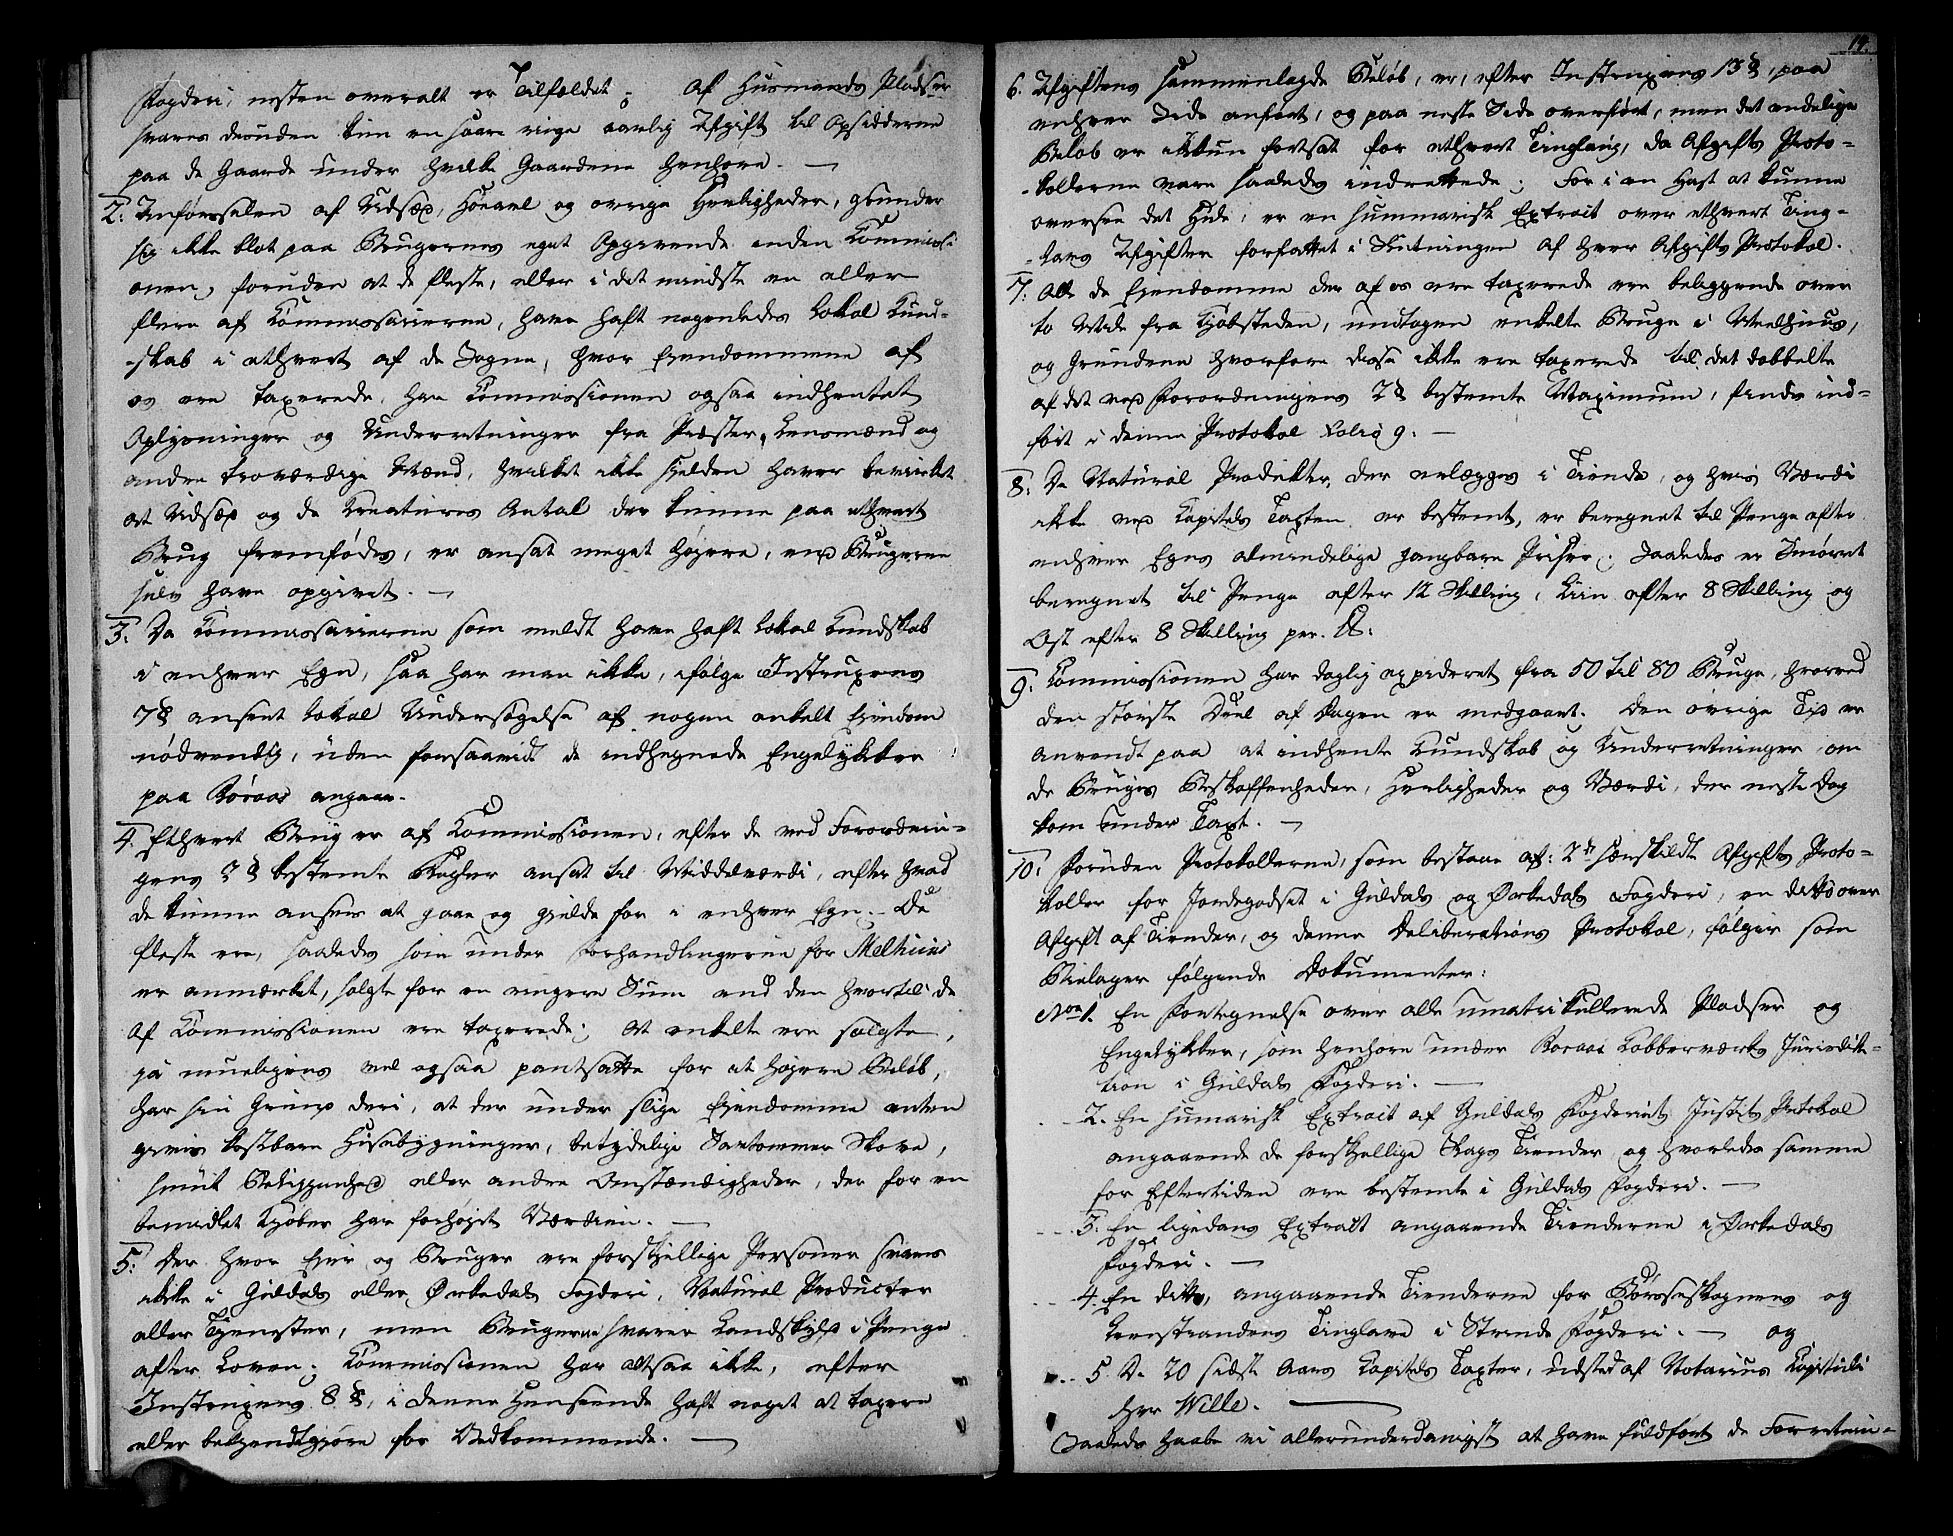 Fogderi, nesten overalt er Tilfældet; af Husmands Pladser
svares desuden kun en saare ringe aarlig Afgift til Opsidderne
paa de Gaarde under hvilke Gaardene henhøre. —
2: Anførselen af Udsæd, Høeavl og øvrige Herligheder, grunder
sig ikke blot paa Brugernes eget Opgivende inden Commissi-
onen, foruden at de fleste, eller i det mindste en eller
flere af Commissairerne, have haft nogenledes Lokal Kund-
-skab i ethvert af de Sogne, hvor Eiendommene af
os ere taxerede, har Commissionen ogsaa indhentet
Oplysninger og Underretninger fra Præster, Lensmænd og
andre troværdige Mænd, hvilket ikke sielden haver bevirket
at Udsæd og de Kreatures Antal der kunne paa ethvert
Brug fremfødes, er ansat meget højere, end Brugerne
selv have opgivet. —
3: Da Commissairerne som meldt have haft Lokal Kundskab
i enhver Egn, saa har man ikke, ifølge Instruxens
7§ anseet Lokal Undersøgelse af nogen enkelt Eiendom
nødvendig, uden forsaavidt de indhegnede Engelykker
paa Røraas angaar.
4. Ethvert Brug er af Commissionen, efter de ved Forordnin-
gens 2§ bestemte Regler ansat til Middelværdi, efter hvad
de kunne ansees at gaae og gielde for i enhver Egn. — De
fleste ere, saaledes som under Forhandlingerne for Melhuus
er anmærket, solgte for en ringere Sum end den hvortil de
af Commissionen ere taxerede; at enkelte ere solgte,
ja mueligens vel ogsaa pantsatte for et højere Beløb,
har sin Grund deri, at der under slige Eiendomme enten
gives kostbare Huusebygninger, betydelige Sautømmer Skove,
smuk Beliggenhed eller andre Omstændigheder, der for en
bemidlet Kjøber har forhøjet Værdien. —
5: Der hvor Eier og Bruger ere forskjellige Personer svares
ikke i Guldals eller Ørkedals Fogderi, Natural Producter
eller Tjenester, men Brugerne svarer Landskyld i Penge
efter Loven; Commissionen har altsaa ikke, efter
Instruxens 8§, i denne Henseende haft noget at taxere
eller bekjendtgjøre for Vedkommende. —
14.
6. Afgiftens sammenlagde Beløb, er, efter Instruxens 13§, paa
enhver Side anført, og paa neste Side overført, men det endelige
Beløb er ikkun fortsat for ethvert Tinglaug, da Afgifts Proto-
-kollerne vare saaledes indrettede; For i en Hast at kunne
oversee det Hele, er en summarisk Extrait over ethvert Ting-
-laugs Afgifter forfattet i Slutningen af hver Afgifts Protokol.
7. Alle de Eiendomme der af os ere taxerede ere beliggende over
to Mile fra Kjøbsteden, undtagen enkelte Bruge i Melhuus,
og Grundene hvorfore disse ikke ere taxerede til det dobbelte
af det ved Forordningens 2§ bestemte Maximum, findes ind-
ført i denne Protokol Folio 9. —
8: De Natural Produkter, der erlægges i Tiende, og hvis Værdi
ikke ved Kapitels Taxten er bestemt, er beregnet til Penge efter
enhver Egns almindelige gangbare Priser; saaledes er Smørret
beregnet til Penge efter 12 Skilling, Liin efter 8 Skilling og
Ost efter 8 Skilling per ℔:
9: Commissionen har daglig expederet fra 50 til 80 Bruge, hvorved
den største Deel af Dagen er medgaaet. Den øvrige Tid er
anvendt paa at indhente Kundskab og Underretninger om
de Bruges Beskaffenheder, Herligheder og Værdi, der neste Dag
kom under Taxt. —
10: Foruden Protokollerne, som bestaae af: 2de særskildte Afgifts Proto-
koller for Jordegodset i Guldals og Ørkedals Fogderi, en ditto over
Afgift af Tiender, og denne Deliberations Protokol, følger som
Bielager følgende Dokumenter:
Nro 1. En Fortegnelse over alle umatrikullerede Pladser og
Engelykker, som henhøre under Røraas Kobberværks Jurisdik-
tion i Guldals Fogderi. —
- 2. En summarisk Extrait af Guldals Fogderiets Justits Protokol
angaaende de forskjellige Slags Tiender og hvorledes samme
for Eftertiden ere bestemte i Guldals Fogderi. —
- - 3. En ligedans Extrait angaaende Tienderne i Ørkedals
Fogderi. —
- - 4. En ditto, angaaende Tienderne for Børseskognens og
Leerstrandens Tinglave i Strinde Fogderi. — og
- - 5. De 20 sidste Aars Kapitels Taxter, udsted af Notarius Capituli
Herr Wille. —
Saaledes haabe vi allerunderdanigst at have fuldført de Forretnin-